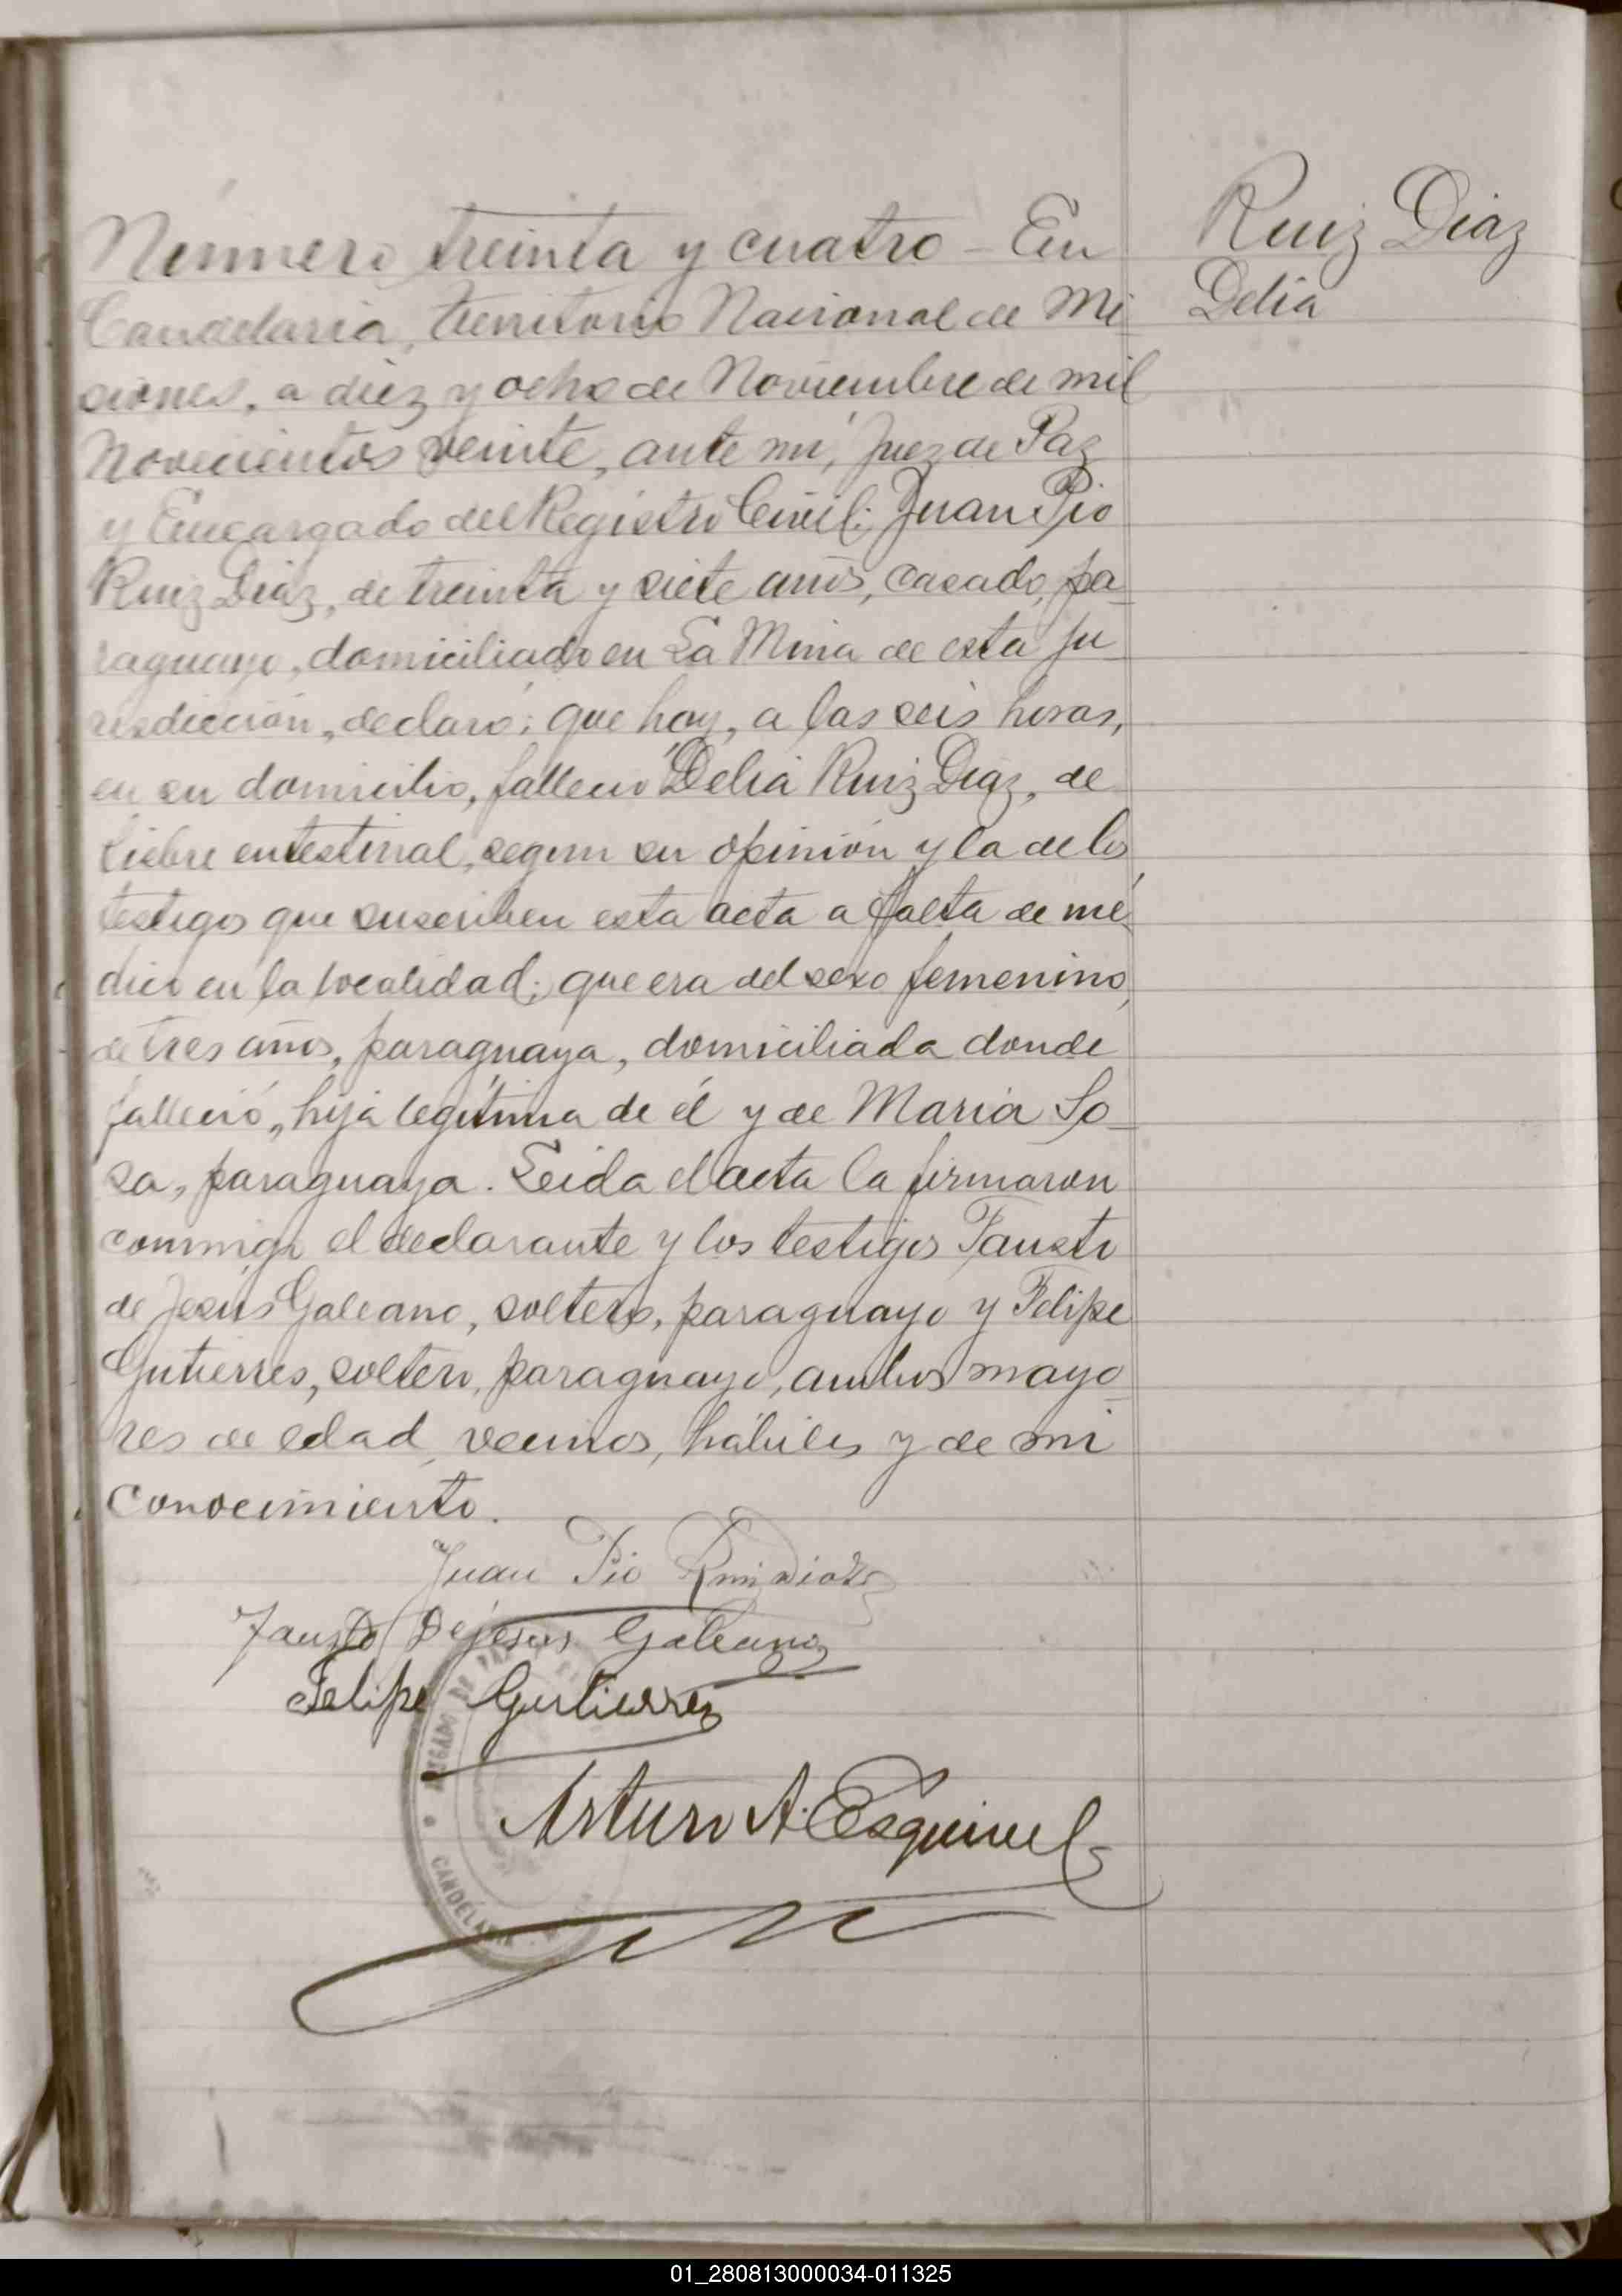 Número treinta y cuatro - En
Candelaria, territorio Nacional de Mi
siones, a diez y ocho de Noviembre de mil
Novecientos veinte, ante mí, Juez de Paz
y Encargado del Registro Civil: Juan Pio
Ruiz Diaz, de treinta y siete años, casado, pa-
raguayo, domiciliado en La Mina de esta ju
risdicción, declaró: que hoy, a las seis horas,
en su domicilio, falleció Delia Ruiz Diaz, de
fiebre entestinal, segun su opinión y la de los
testigos que suscriben esta acta a falta de mé
dico en la localidad; que era del sexo femenino,
de tres años, paraguaya, domiciliada donde
falleció, hija legítima de él y de Maria So-
sa, paraguaya. Leida el acta la firmaron
conmigo el declarante y los testigos Fausto
de Jesús Galeano, soltero, paraguayo y Felipe
Gutierres, soltero, paraguayo, ambos mayo
res de edad, vecinos, hábiles y de mi
conocimiento.
Ruiz Diaz
Delia
Juan Pio Ruiz Diaz
Fausto Dejesus Galeano
Felipe Gutierrez
Arturo A. Esquivel
CANDELARIA
01_280813000034-011325